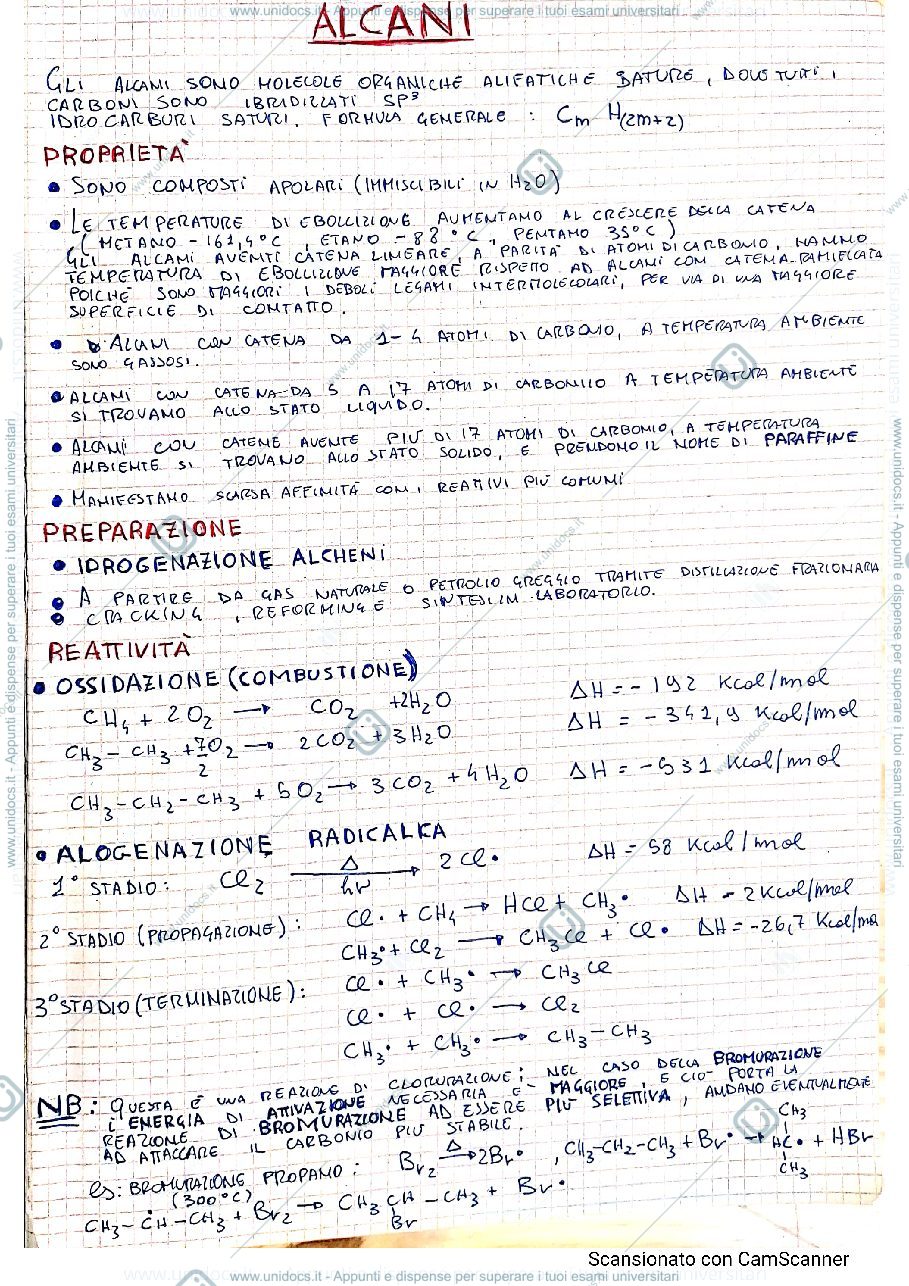 www.unidocs.it - Appunti e dispense per superare i tuoi esami universitari
ALCANI
GLI ALCANI SONO MOLECOLE ORGANICHE ALIFATICHE SATURE, DOVE TUTTI I
CARBONI SONO IBRIDIZZATI SP³
IDROCARBURI SATURI. FORMULA GENERALE : Cm H(2m+2)
PROPRIETA'
• SONO COMPOSTI APOLARI (IMMISCIBILI IN H₂O)
• LE TEMPERATURE DI EBOLLIZIONE AUMENTANO AL CRESCERE DELLA CATENA
(METANO - 161,4°C , ETANO - 88°C , PENTANO 35°C)
GLI ALCANI AVENTI CATENA LINEARE, A PARITÀ DI ATOMI DI CARBONIO, HANNO
TEMPERATURA DI EBOLLIZIONE MAGGIORE RISPETTO AD ALCANI CON CATENA RAMIFICATA
POICHÈ SONO MAGGIORI I DEBOLI LEGAMI INTERMOLECOLARI, PER VIA DI UNA MAGGIORE
SUPERFICIE DI CONTATTO.
• ALCANI CON CATENA DA 1-4 ATOMI DI CARBONIO, A TEMPERATURA AMBIENTE
SONO GASSOSI.
• ALCANI CON CATENA DA 5 A 17 ATOMI DI CARBONIO A TEMPERATURA AMBIENTE
SI TROVANO ALLO STATO LIQUIDO.
• ALCANI CON CATENE AVENTE PIÙ DI 17 ATOMI DI CARBONIO, A TEMPERATURA
AMBIENTE SI TROVANO ALLO STATO SOLIDO, E PRENDONO IL NOME DI PARAFFINE
• MANIFESTANO SCARSA AFFINITÀ CON I REATTIVI PIÙ COMUNI
PREPARAZIONE
• IDROGENAZIONE ALCHENI
• A PARTIRE DA GAS NATURALE O PETROLIO GREGGIO TRAMITE DISTILLAZIONE FRAZIONARIA
• CRACKING , REFORMING E SINTESI IN LABORATORIO.
REATTIVITÀ
• OSSIDAZIONE (COMBUSTIONE)
CH₄ + 2O₂ → CO₂ +2H₂O ΔH = - 192 Kcal/mol
CH₃-CH₃ + 7/2 O₂ → 2CO₂ + 3H₂O ΔH = - 341,9 Kcal/mol
CH₃-CH₂-CH₃ + 5O₂ → 3CO₂ + 4H₂O ΔH = -531 Kcal/mol
• ALOGENAZIONE RADICALICA
1° STADIO: Cl₂ Δ→hν 2Cl• ΔH = 58 Kcal/mol
2° STADIO (PROPAGAZIONE): Cl• + CH₄ → HCl + CH₃• ΔH - 2Kcal/mol
CH₃• + Cl₂ → CH₃Cl + Cl• ΔH = -26,7 Kcal/mol
3° STADIO (TERMINAZIONE): Cl• + CH₃• → CH₃Cl
Cl• + Cl• → Cl₂
CH₃• + CH₃• → CH₃-CH₃
NB: QUESTA È UNA REAZIONE DI CLORURAZIONE; NEL CASO DELLA BROMURAZIONE
L'ENERGIA DI ATTIVAZIONE NECESSARIA È MAGGIORE, E CIO' PORTA LA
REAZIONE DI BROMURAZIONE AD ESSERE PIÙ SELETTIVA, ANDANO EVENTUALMENTE
AD ATTACCARE IL CARBONIO PIÙ STABILE.
es: BROMURAZIONE PROPANO: Br₂ Δ→ 2Br• , CH₃-CH₂-CH₃ + Br• → CH₃ HC• CH₃ + HBr
(300°C)
CH₃-ĊH-CH₃ + Br₂ → CH₃ CH -CH₃ + Br•
Br
Scansionato con CamScanner
www.unidocs.it - Appunti e dispense per superare i tuoi esami universitari